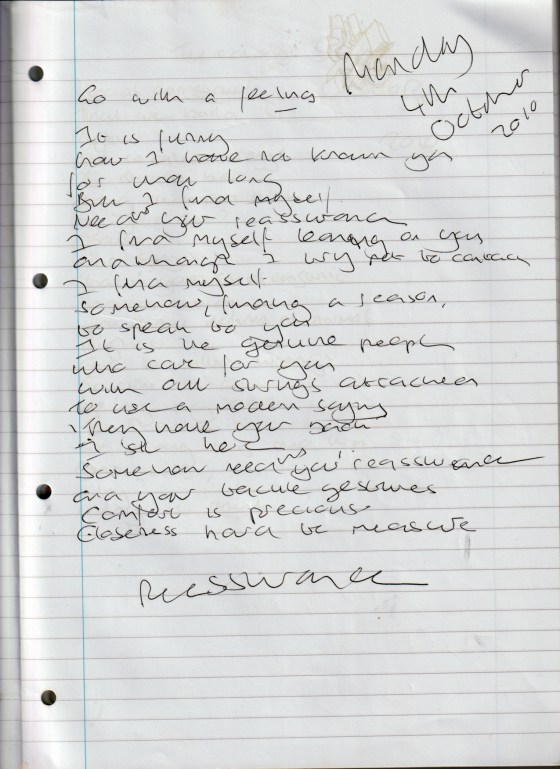 Go with a feeling
Monday
4th
October
2010
It is funny
how I have not known you
for that long
But I find myself
Needing your reasswrance
I find myself leaning on you
and I try not to contact
I find myself
Somehow, finding a reason,
to speak to you
It is the genuine people
who care for you
with out strings attached
to use a modern saying
They have your back
I sit here
Somehow needing your reasswrance
and your tactile gestures
Comfort is precious
Closeness hard to measure
Reasswrance